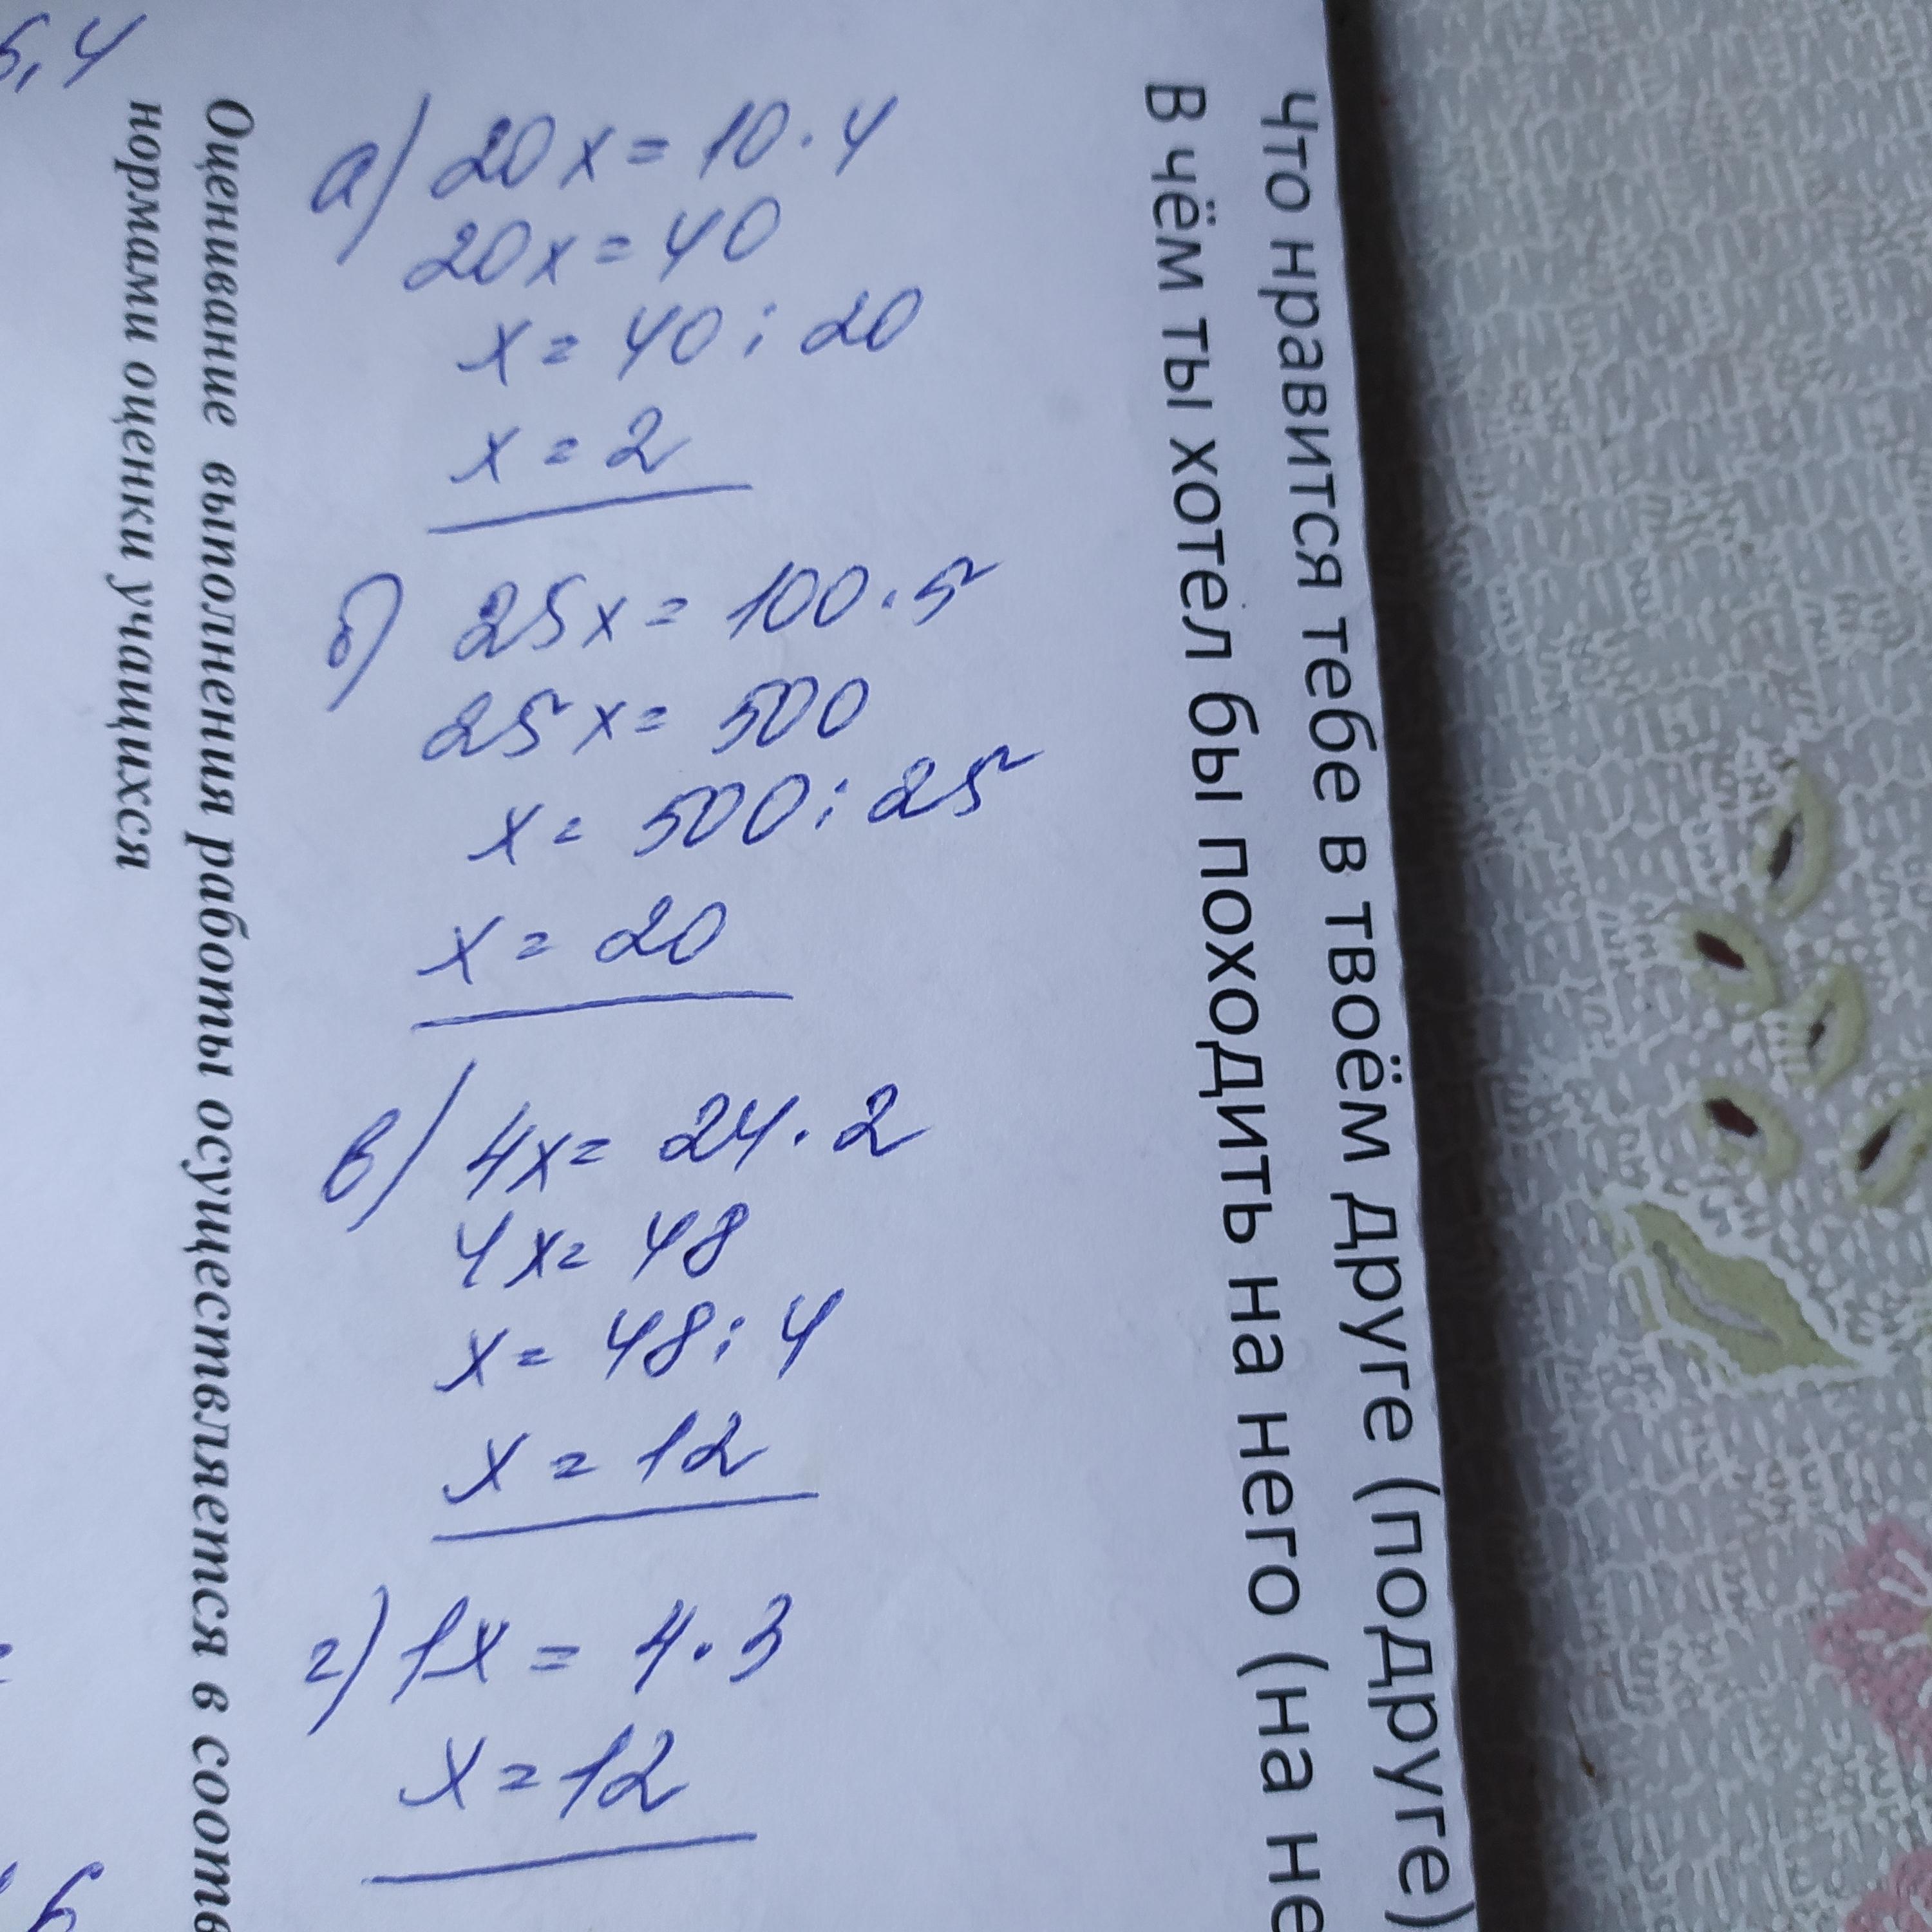 5,4
а) 20x = 10 · 4
20x = 40
x = 40 : 20
x = 2
б) 25x = 100 · 5
25x = 500
x = 500 : 25
x = 20
в) 4x = 24 · 2
4x = 48
x = 48 : 4
x = 12
г) 1x = 4 · 3
x = 12
Что нравится тебе в твоём друге (подруге)
В чём ты хотел бы походить на него (на не
Оценивание выполнения работы осуществляется в соотв
нормами оценки учащихся